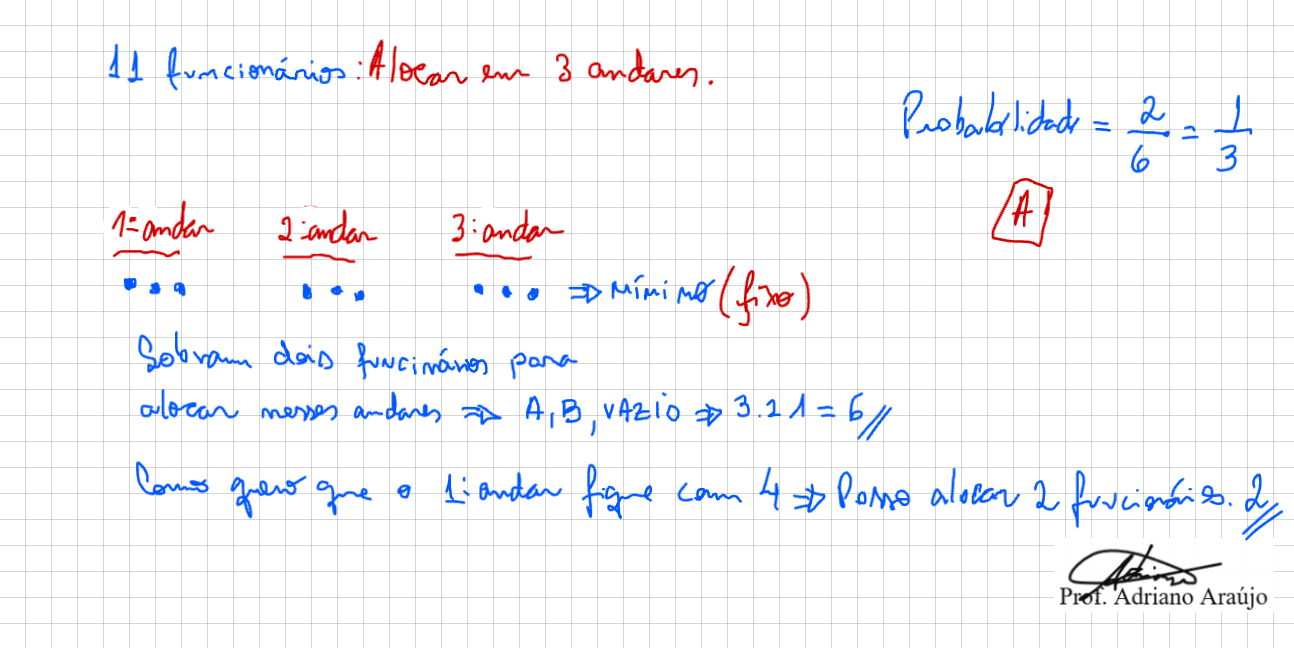 11 funcionários: Alocar em 3 andares.
Probabilidade = 2/6 = 1/3
A
1º andar 2º andar 3º andar
⇒ Mínimo (fixo)
Sobram dois funcinários para
alocar nesses andares ⇒ A, B, VAZIO ⇒ 3.2.1 = 6//
Como quero que o 1º andar fique com 4 ⇒ Posso alocar 2 funcionários. 2//
Prof. Adriano Araújo